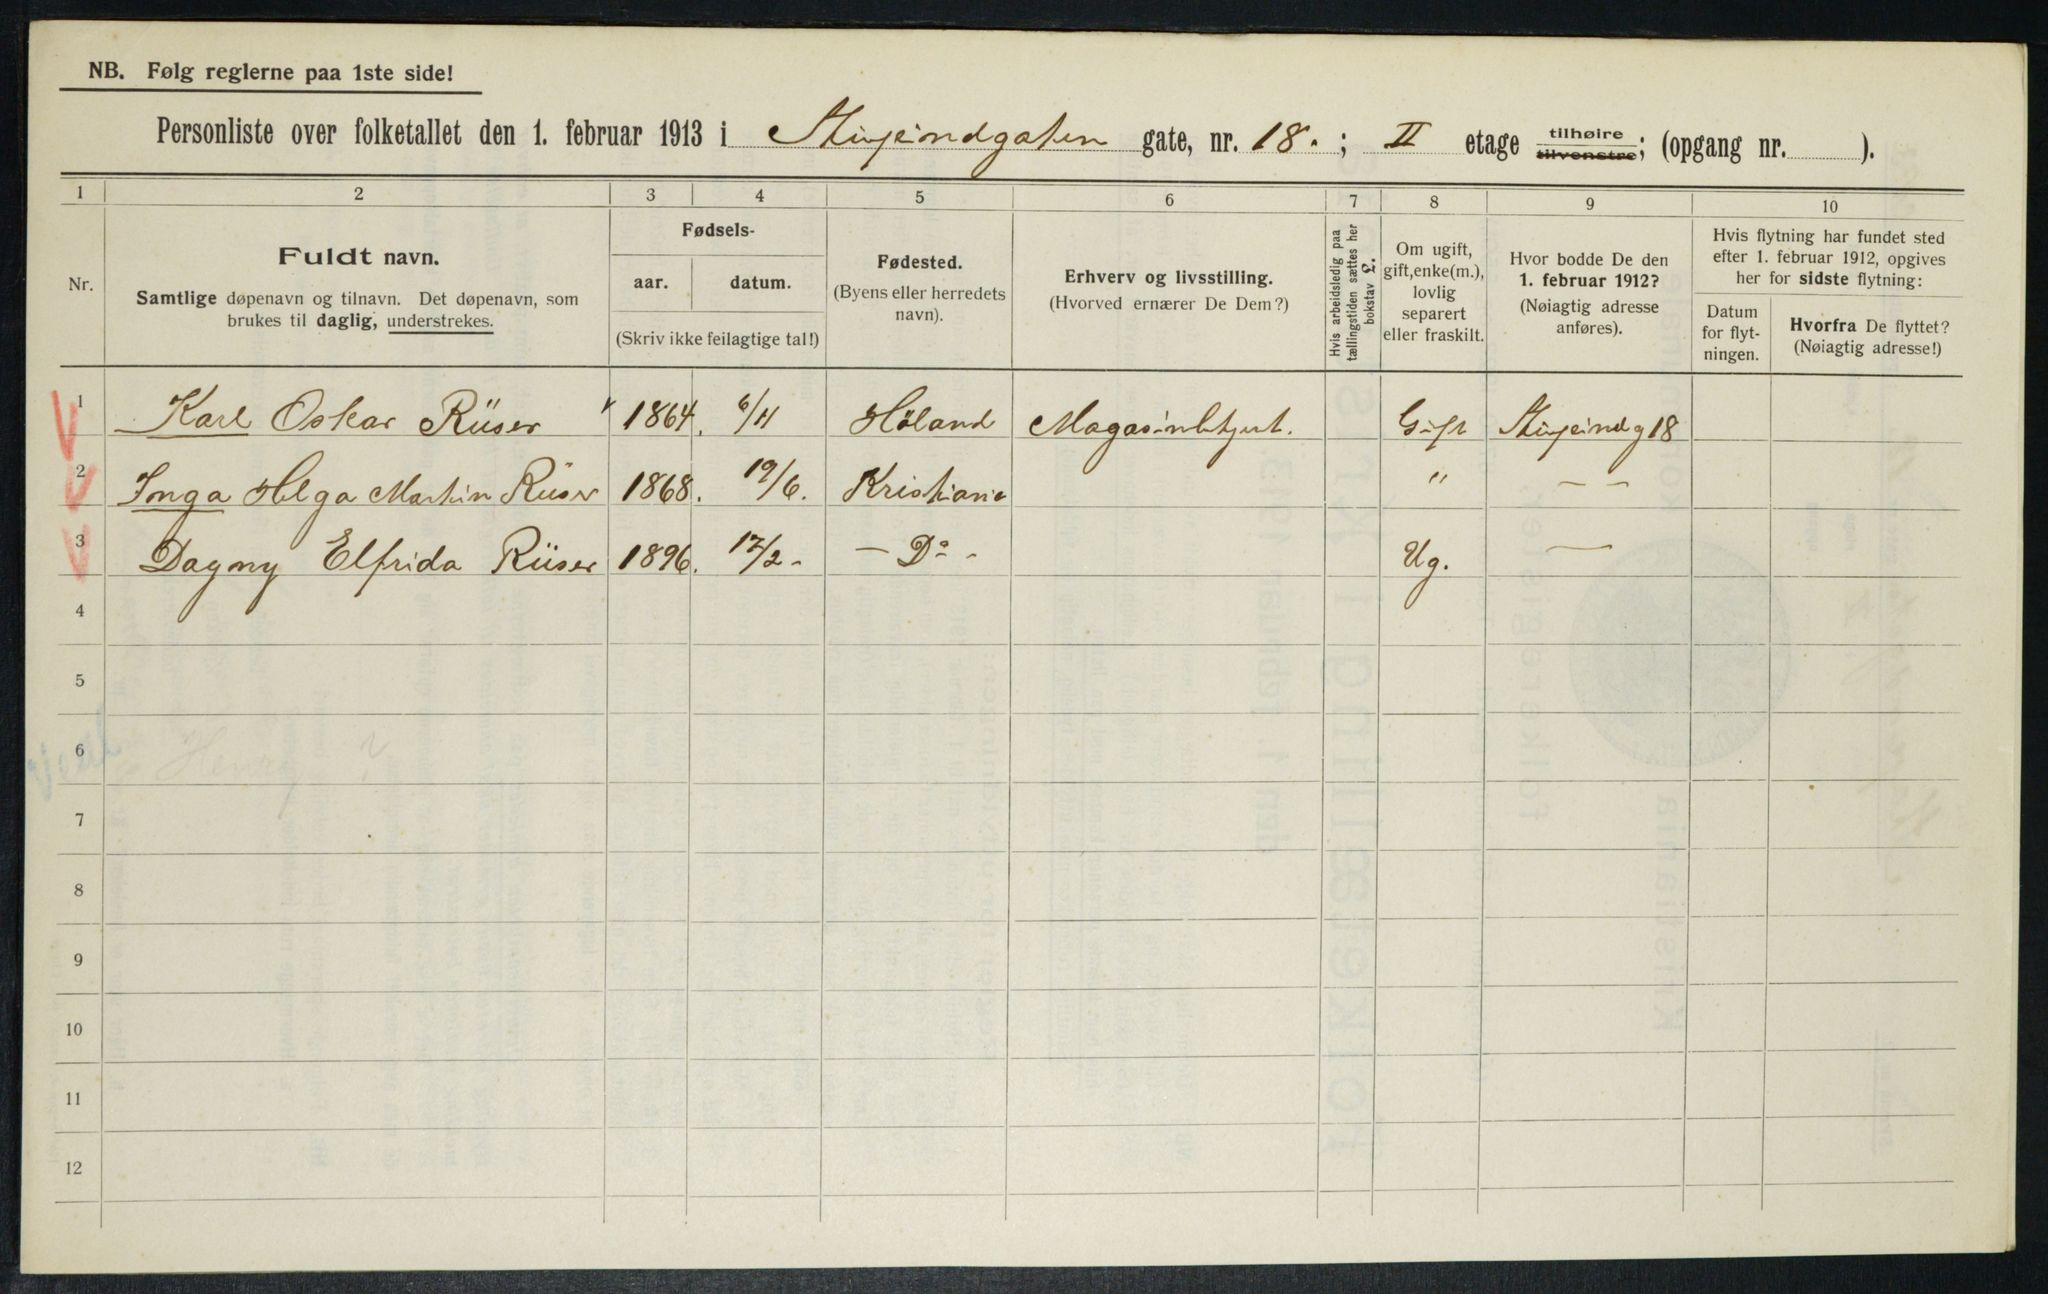 NB. Følg reglerne paa 1ste side!
Personliste over folketallet den 1. februar 1913 i Stupindgaten gate, nr. 18. ; II etage tilhøire tilvenstre; (opgang nr. ).
1 2 3 4 5 6 7 8 9 10
Nr.
Fuldt navn.
Samtlige døpenavn og tilnavn. Det døpenavn, som
brukes til daglig, understrekes.
Fødsels-
aar. datum.
(Skriv ikke feilagtige tal!)
Fødested.
(Byens eller herredets
navn).
Erhverv og livsstilling.
(Hvorved ernærer De Dem?)
Hvis arbeidsledig paa
tællingstiden sættes her
bokstav L.
Om ugift,
gift, enke(m.),
lovlig
separert
eller fraskilt.
Hvor bodde De den
1. februar 1912?
(Nøiagtig adresse
anføres).
Hvis flytning har fundet sted
efter 1. februar 1912, opgives
her for sidste flytning:
Datum
for flyt-
ningen.
Hvorfra De flyttet?
(Nøiagtig adresse!)
1 Karl Oskar Rüser 1864. 6/11 Höland Gift 18
2 Inga Helga Martin Rüser 1868. 19/6. Kristiania " — —
3 Dagny Elfrida Rüser 1896. 17/2 - — Do - Ug. —
4
5
6 Henry
7
8
9
10
11
12